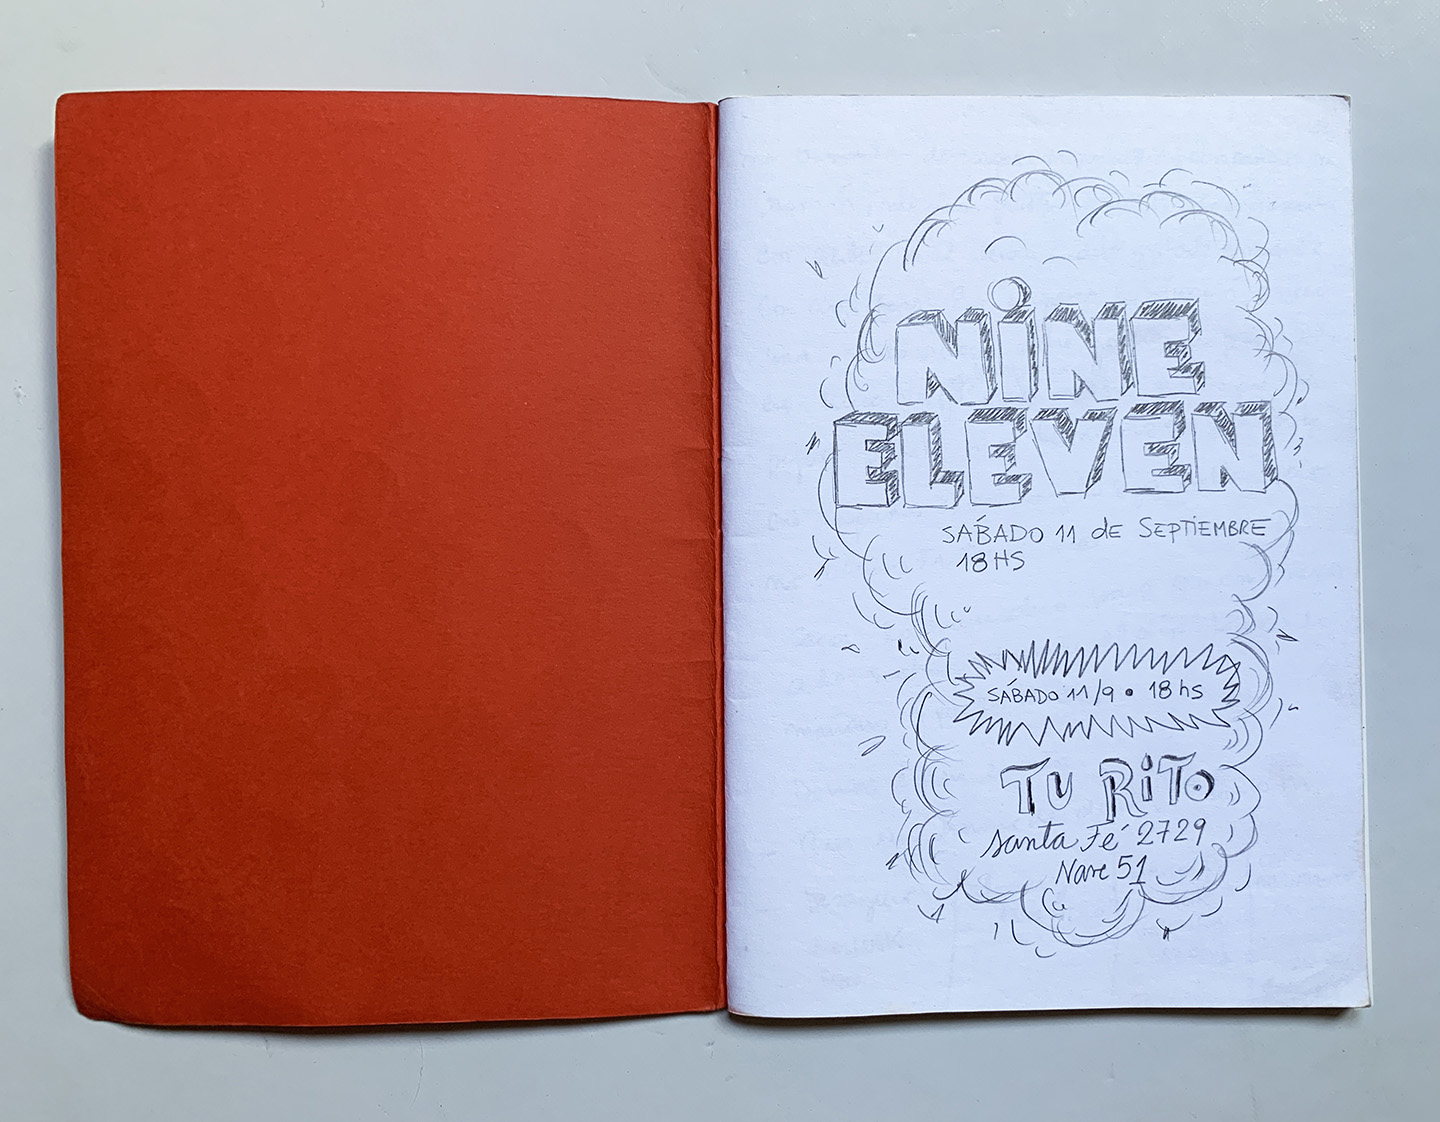 NiNE
ELEVEN
SÁBADO 11 de SEPTiEMBRE
18HS
SÁBADO 11/9 • 18hs
TU RiTo
Santa Fé 2729
Nave 51